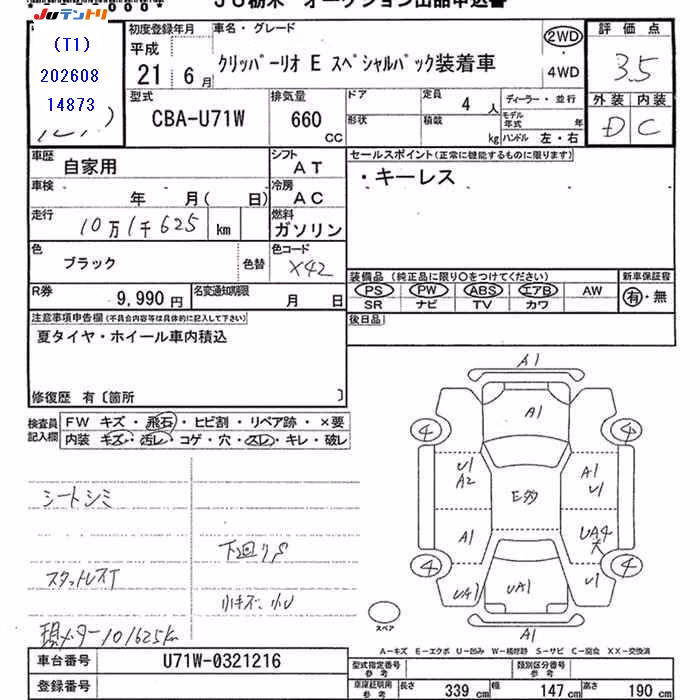 Juテントリ
JU栃木 オークション出品申込書
(T1)
202608
14873
初度登録年月
平成
21年 6月
車名・グレード
クリッパーリオ E スペシャルパック装着車
2WD
・
4WD
評価点
3.5
外装 内装
D C
型式
CBA-U71W
排気量
660
CC
ドア
形状
定員 4 人
積載 kg
ディーラー・並行
モデル年式 年
ハンドル 左・右
車歴 自家用
シフト AT
車検 年 月( 日)
冷房 AC
走行 10万1千625 km
燃料 ガソリン
色 ブラック 色替
色コード X42
R券 9,990円
名変通知期限 月 日
セールスポイント(正常に機能するものに限ります)
・キーレス
装備品 (純正品に限り○をつけてください)
PS PW ABS エアB AW
SR ナビ TV カワ
新車保証書
有・無
後日品
注意事項申告欄(不具合内容等は具体的に記入して下さい)
夏タイヤ・ホイール車内積込
修復歴 有〔箇所 〕
検査員記入欄
FW キズ・飛石・ヒビ割・リペア跡・×要
内装 キズ・汚レ・コゲ・穴・スレ・キレ・破レ
シートシミ
下回りS
スタットレスT
小キズ、小U
現メーター101625km
A1
A1
4 4
U1
A2
A1
U1
E多
A1
UA4
大
4 4
UA1
UA1
U1
A1
スペア
A－キズ E－エクボ U－凹み W－補修跡 S－サビ C－腐食 XX－交換済
車台番号 U71W-0321216
登録番号
型式指定番号 参考
類別区分番号 参考
車庫証明用 参考
長さ 339 cm
幅 147 cm
高さ 190 cm